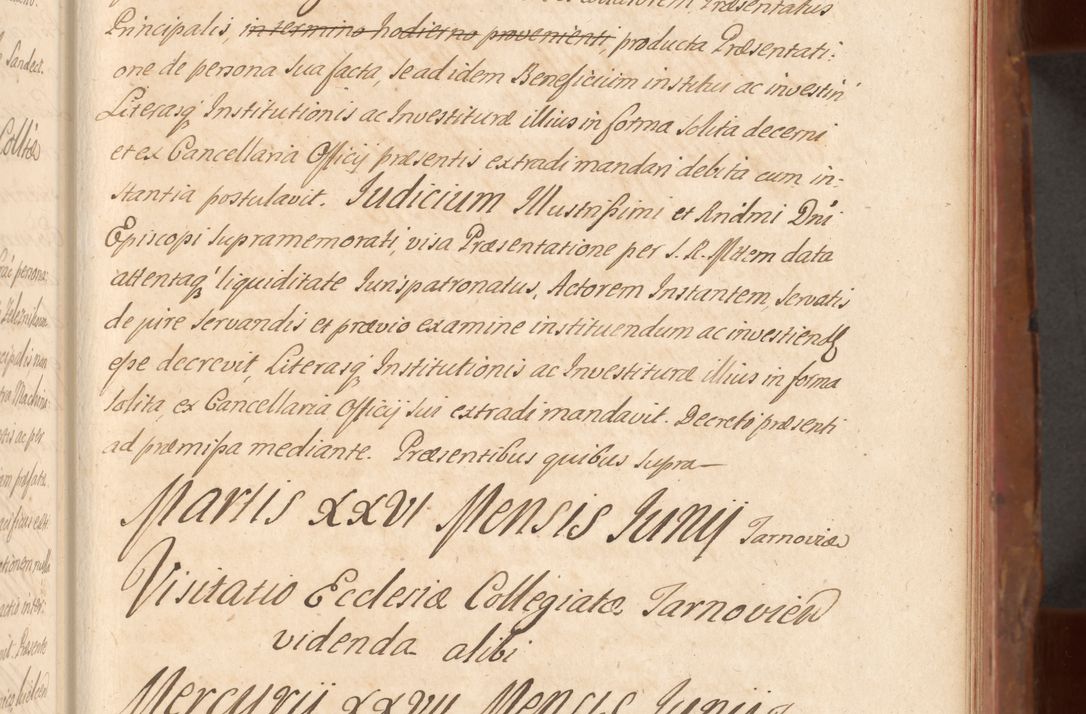 Præsentatus
Principalis, in termino hodierno provenienti, producta Præsentati:
one de persona sua facta, se ad idem Beneficium institui ac investiri
Literasq Institutionis ac Investituræ illius in forma solita decerni
et ex Cancellaria Officij præsentis extradi mandari debita cum in:
stantia postulavit. Judicium Illustrissimi et Rndmi Dni
Episcopi supramemorati, visa Præsentatione per S. R. Mtem data
attentaq liquiditate Jurispatronatus, Actorem Instantem, servatis
de jure servandis et prævio examine instituendum ac investiend
esse decrevit, Literasq Institutionis ac Investituræ illius in forma
solita, ex Cancellaria Officij sui extradi mandavit. Decreto præsenti
ad præmissa mediante. Præsentibus quibus supra
Martis XXVI Mensis Junij Tarnoviæ
Visitatio Ecclesiæ Collegiatæ Tarnovien
videnda alibi
Mercurij XXVII Mensis Junij